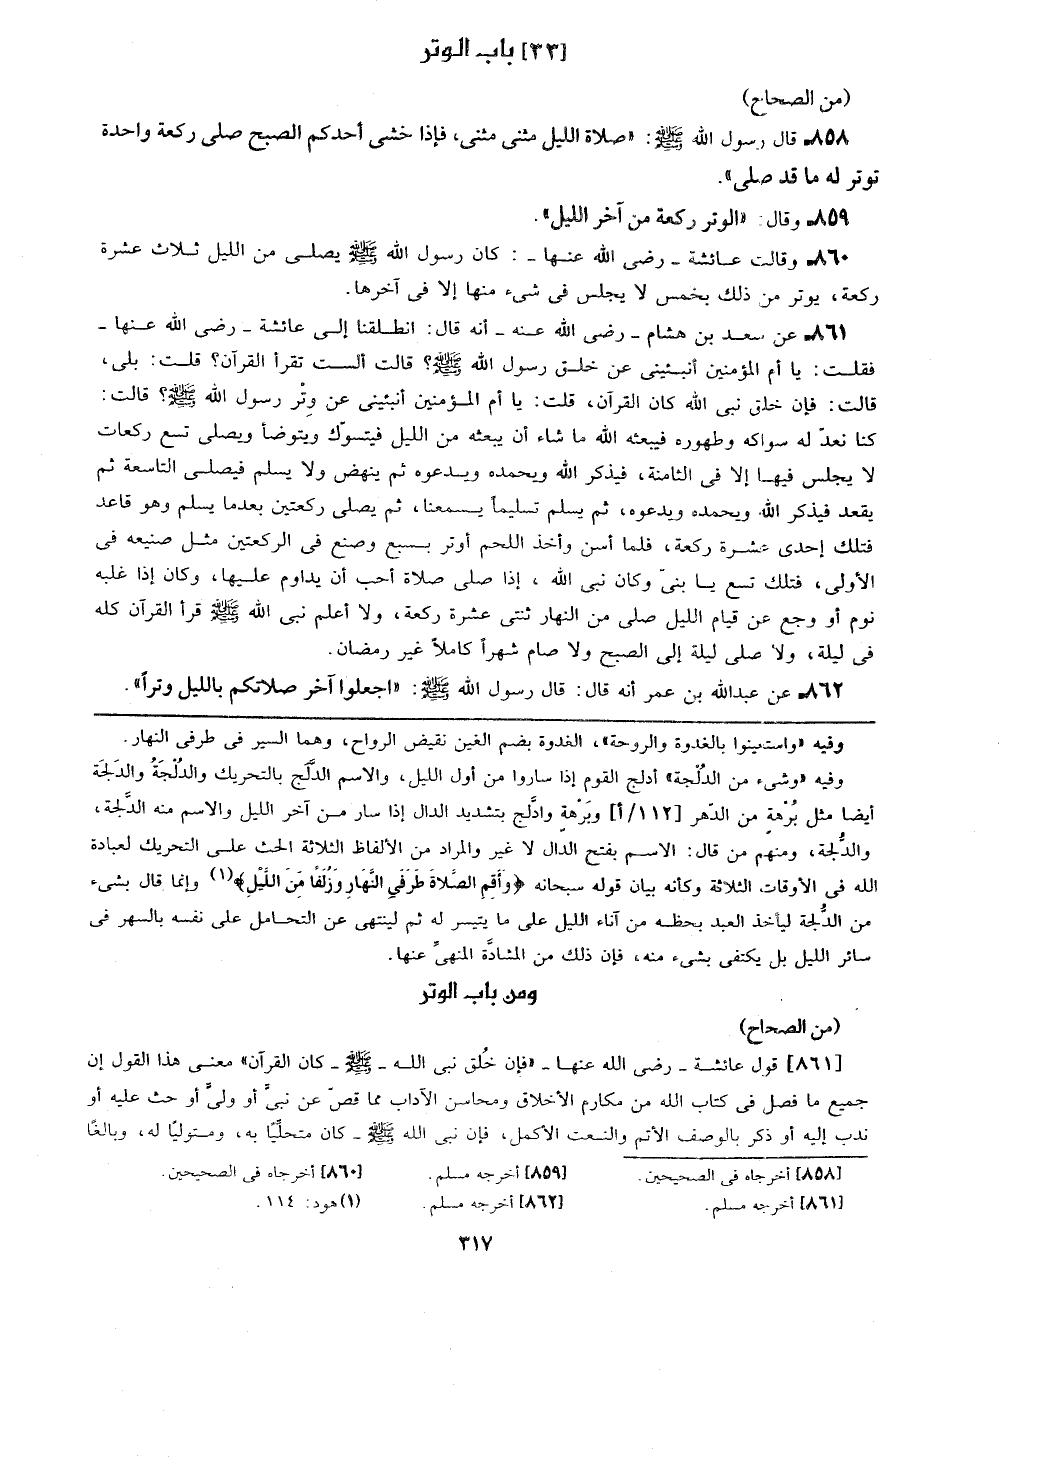 [٣٣] باب الوتر
(من الصحاح)
٨٥٨ـ قال رسول الله ﷺ: «صلاة الليل مثنى مثنى، فإذا خشى أحدكم الصبح صلى ركعة واحدة
توتر له ما قد صلى».
٨٥٩ـ وقال: «الوتر ركعة من آخر الليل».
٨٦٠ـ وقالت عـائشة ـ رضى الله عنـها ـ : كان رسول الله ﷺ يصلـى من الليل ثـلاث عشرة
ركعة، يوتر من ذلك بخمس لا يجلس فى شىء منها إلا فى آخرها.
٨٦١ـ عن سعـد بن هشام ـ رضى الله عنـه ـ أنه قال: انطـلقنا إلـى عائشة ـ رضى الله عنـها ـ
فقلـت: يا أم المؤمنين أنبـئينى عن خلـق رسول الله ﷺ؟ قالت ألسـت تقرأ القرآن؟ قلـت: بلى،
قالت: فإن خلق نبى الله كان القرآن، قلت: يا أم المـؤمنين أنبئينى عن وِتْر رسول الله ﷺ؟ قالت:
كنا نعدّ له سواكه وطهوره فيبعثه الله ما شاء أن يبعثه من الليل فيتسوّك ويتوضأ ويصلى تسع ركعات
لا يجلس فيهـا إلا فى الثامنة، فيذكر الله ويحمده ويـدعوه ثم ينهض ولا يسلم فيصلـى التاسعة ثم
يقعد فيذكر الله ويحمده ويدعوه، ثم يسلم تسليماً يـسمعنا، ثم يصلى ركعتين بعدما يسلم وهو قاعد
فتلك إحدى عشـرة ركعة، فلما أسن وأخذ اللحم أوتر بـسبع وصنع فى الركعتين مثـل صنيعه فى
الأولى، فتلك تسع يـا بنىّ وكان نبى الله ، إذا صلى صلاة أحب أن يداوم علـيها، وكان إذا غلبه
نوم أو وجع عن قيام الليل صلى من النهار ثنتى عشرة ركعة، ولا أعلم نبى الله ﷺ قرأ القرآن كله
فى ليلة، ولا صلى ليلة إلى الصبح ولا صام شهراً كاملاً غير رمضان.
٨٦٢ـ عن عبدالله بن عمر أنه قال: قال رسول الله ﷺ: «اجعلوا آخر صلاتكم بالليل وتراً».
وفيه «واستعينوا بالغدوة والروحة»، الغدوة بضم الغين نقيض الرواح، وهما السير فى طرفى النهار.
وفيه «وشىء من الدُلْجة» أدلج القوم إذا ساروا من أول الليل، والاسم الدَّلَج بالتحريك والدُلْجَةُ والدَلجَة
أيضا مثل بُرْهةٍ من الدّهر [١١٢/أ] وبَرْهةٍ وادَّلج بتشديد الدال إذا سار مـن آخر الليل والاسم منه الدَّلجة،
والدُّلجة، ومنهم من قال: الاسـم بفتح الدال لا غير والمراد من الألفاظ الثلاثة الحث علـى التحريك لعبادة
الله فى الأوقات الثلاثة وكأنه بيان قوله سبحانه ﴿وَأَقِمِ الصَّلَاةَ طَرَفَيِ النَّهَارِ وَزُلَفًا مِّنَ اللَّيْلِ﴾(١) وإنما قال بشىء
من الدلُّجة ليأخذ العبد بحظـه من آناء الليل على ما يتيسر له ثم لينتهى عن التحـامل على نفسه بالسهر فى
سائر الليل بل يكتفى بشىء منه، فإن ذلك من المشادَّة المنهىِّ عنها.
ومن باب الوتر
(من الصحاح)
[٨٦١] قول عائشـة ـ رضى الله عنهـا ـ «فإن خُلق نبى اللـه ـ ﷺ ـ كان القرآن» معنـى هذا القول إن
جميع ما فصل فى كتاب الله من مكارم الأخلاق ومحاسن الآداب مما قصّ عن نبىٍّ أو ولىٍّ أو حث عليه أو
ندب إليه أو ذكر بالوصف الأتم والنـعت الأكمل، فإن نبى الله ﷺ ـ كان متحلِّيًا به، ومـتوليًا له، وبالغًا
[٨٥٨] أخرجاه فى الصحيحين. [٨٥٩] أخرجه مسلم. [٨٦٠] أخرجاه فى الصحيحين.
[٨٦١] أخرجه مسلم. [٨٦٢] أخرجه مسلم. (١) هود: ١١٤.
٣١٧